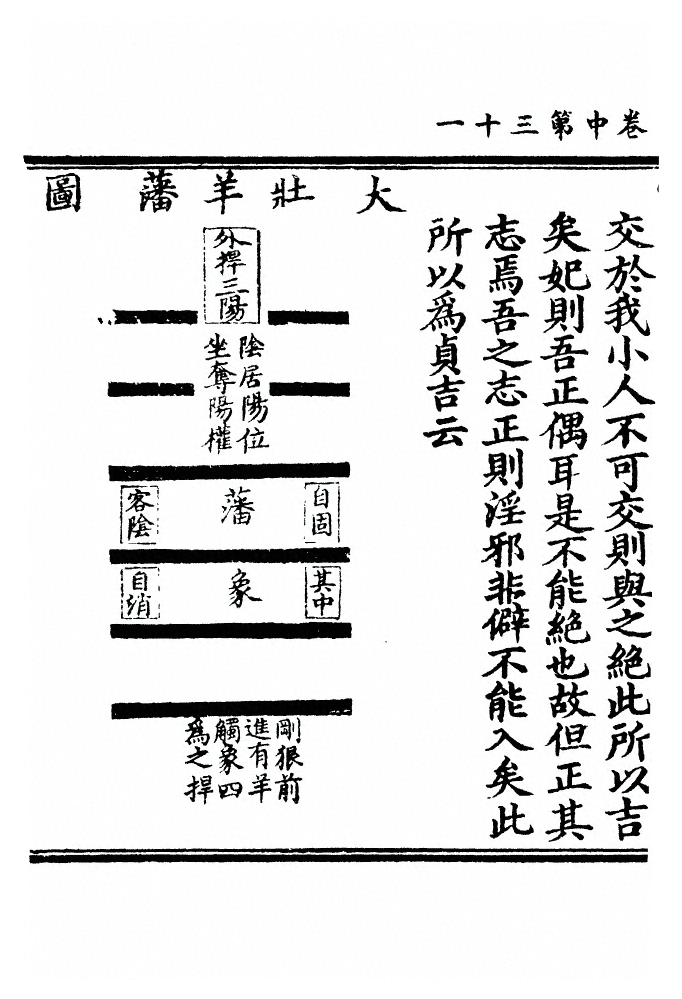 卷中第三十一
交於我小人不可交則與之絕此所以吉
矣妃則吾正偶耳是不能絕也故但正其
志焉吾之志正則淫邪非僻不能入矣此
所以為貞吉云
大壯羊藩圖
外捍三陽
陰居陽位
坐奪陽權
自固
藩
客陰
其中
象
自消
剛狠前
進有羊
觸象四
為之捍